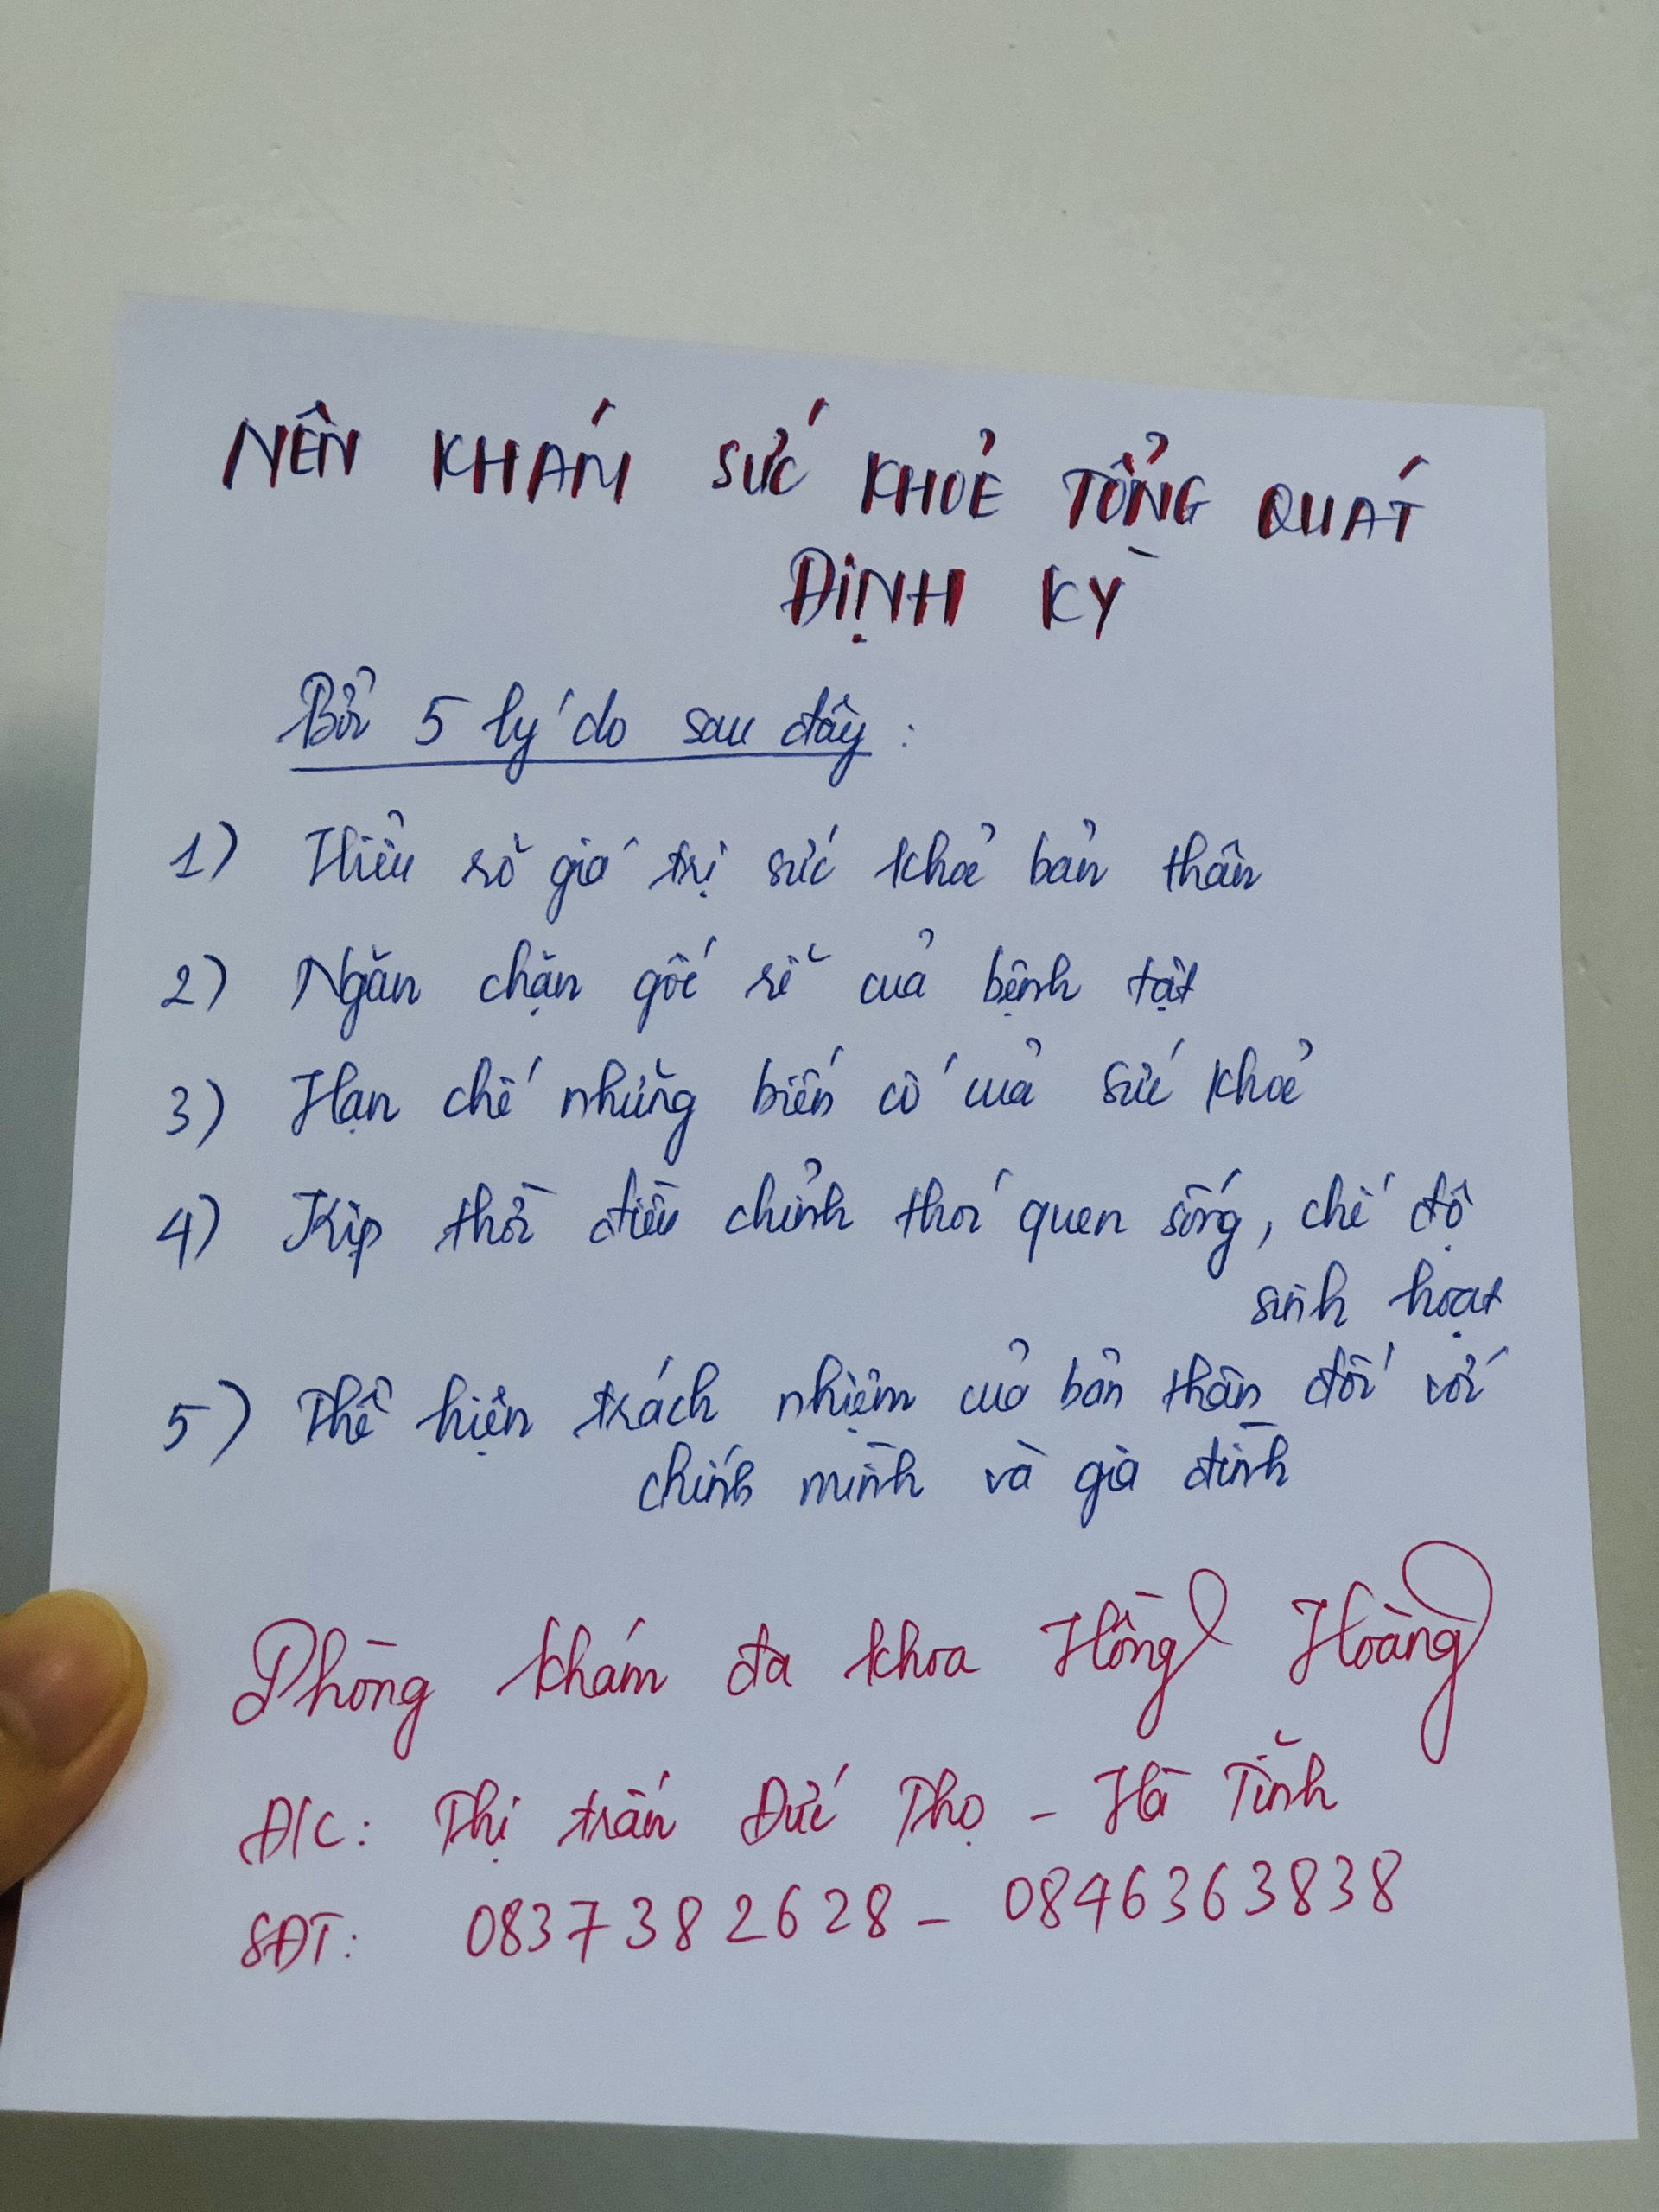 NÊN KHÁM SỨC KHOẺ TỔNG QUÁT
ĐỊNH KỲ
Bởi 5 lý do sau đây :
1) Hiểu rõ giá trị sức khoẻ bản thân
2) Ngăn chặn gốc rễ của bệnh tật
3) Hạn chế những biến cố của sức khoẻ
4) Kịp thời điều chỉnh thói quen sống, chế độ
sinh hoạt
5) Thể hiện trách nhiệm của bản thân đối với
chính mình và gia đình
Phòng khám đa khoa Hồng Hoàng
Đ/C: Thị trấn Đức Thọ - Hà Tĩnh
SĐT: 0837382628 - 0846363838